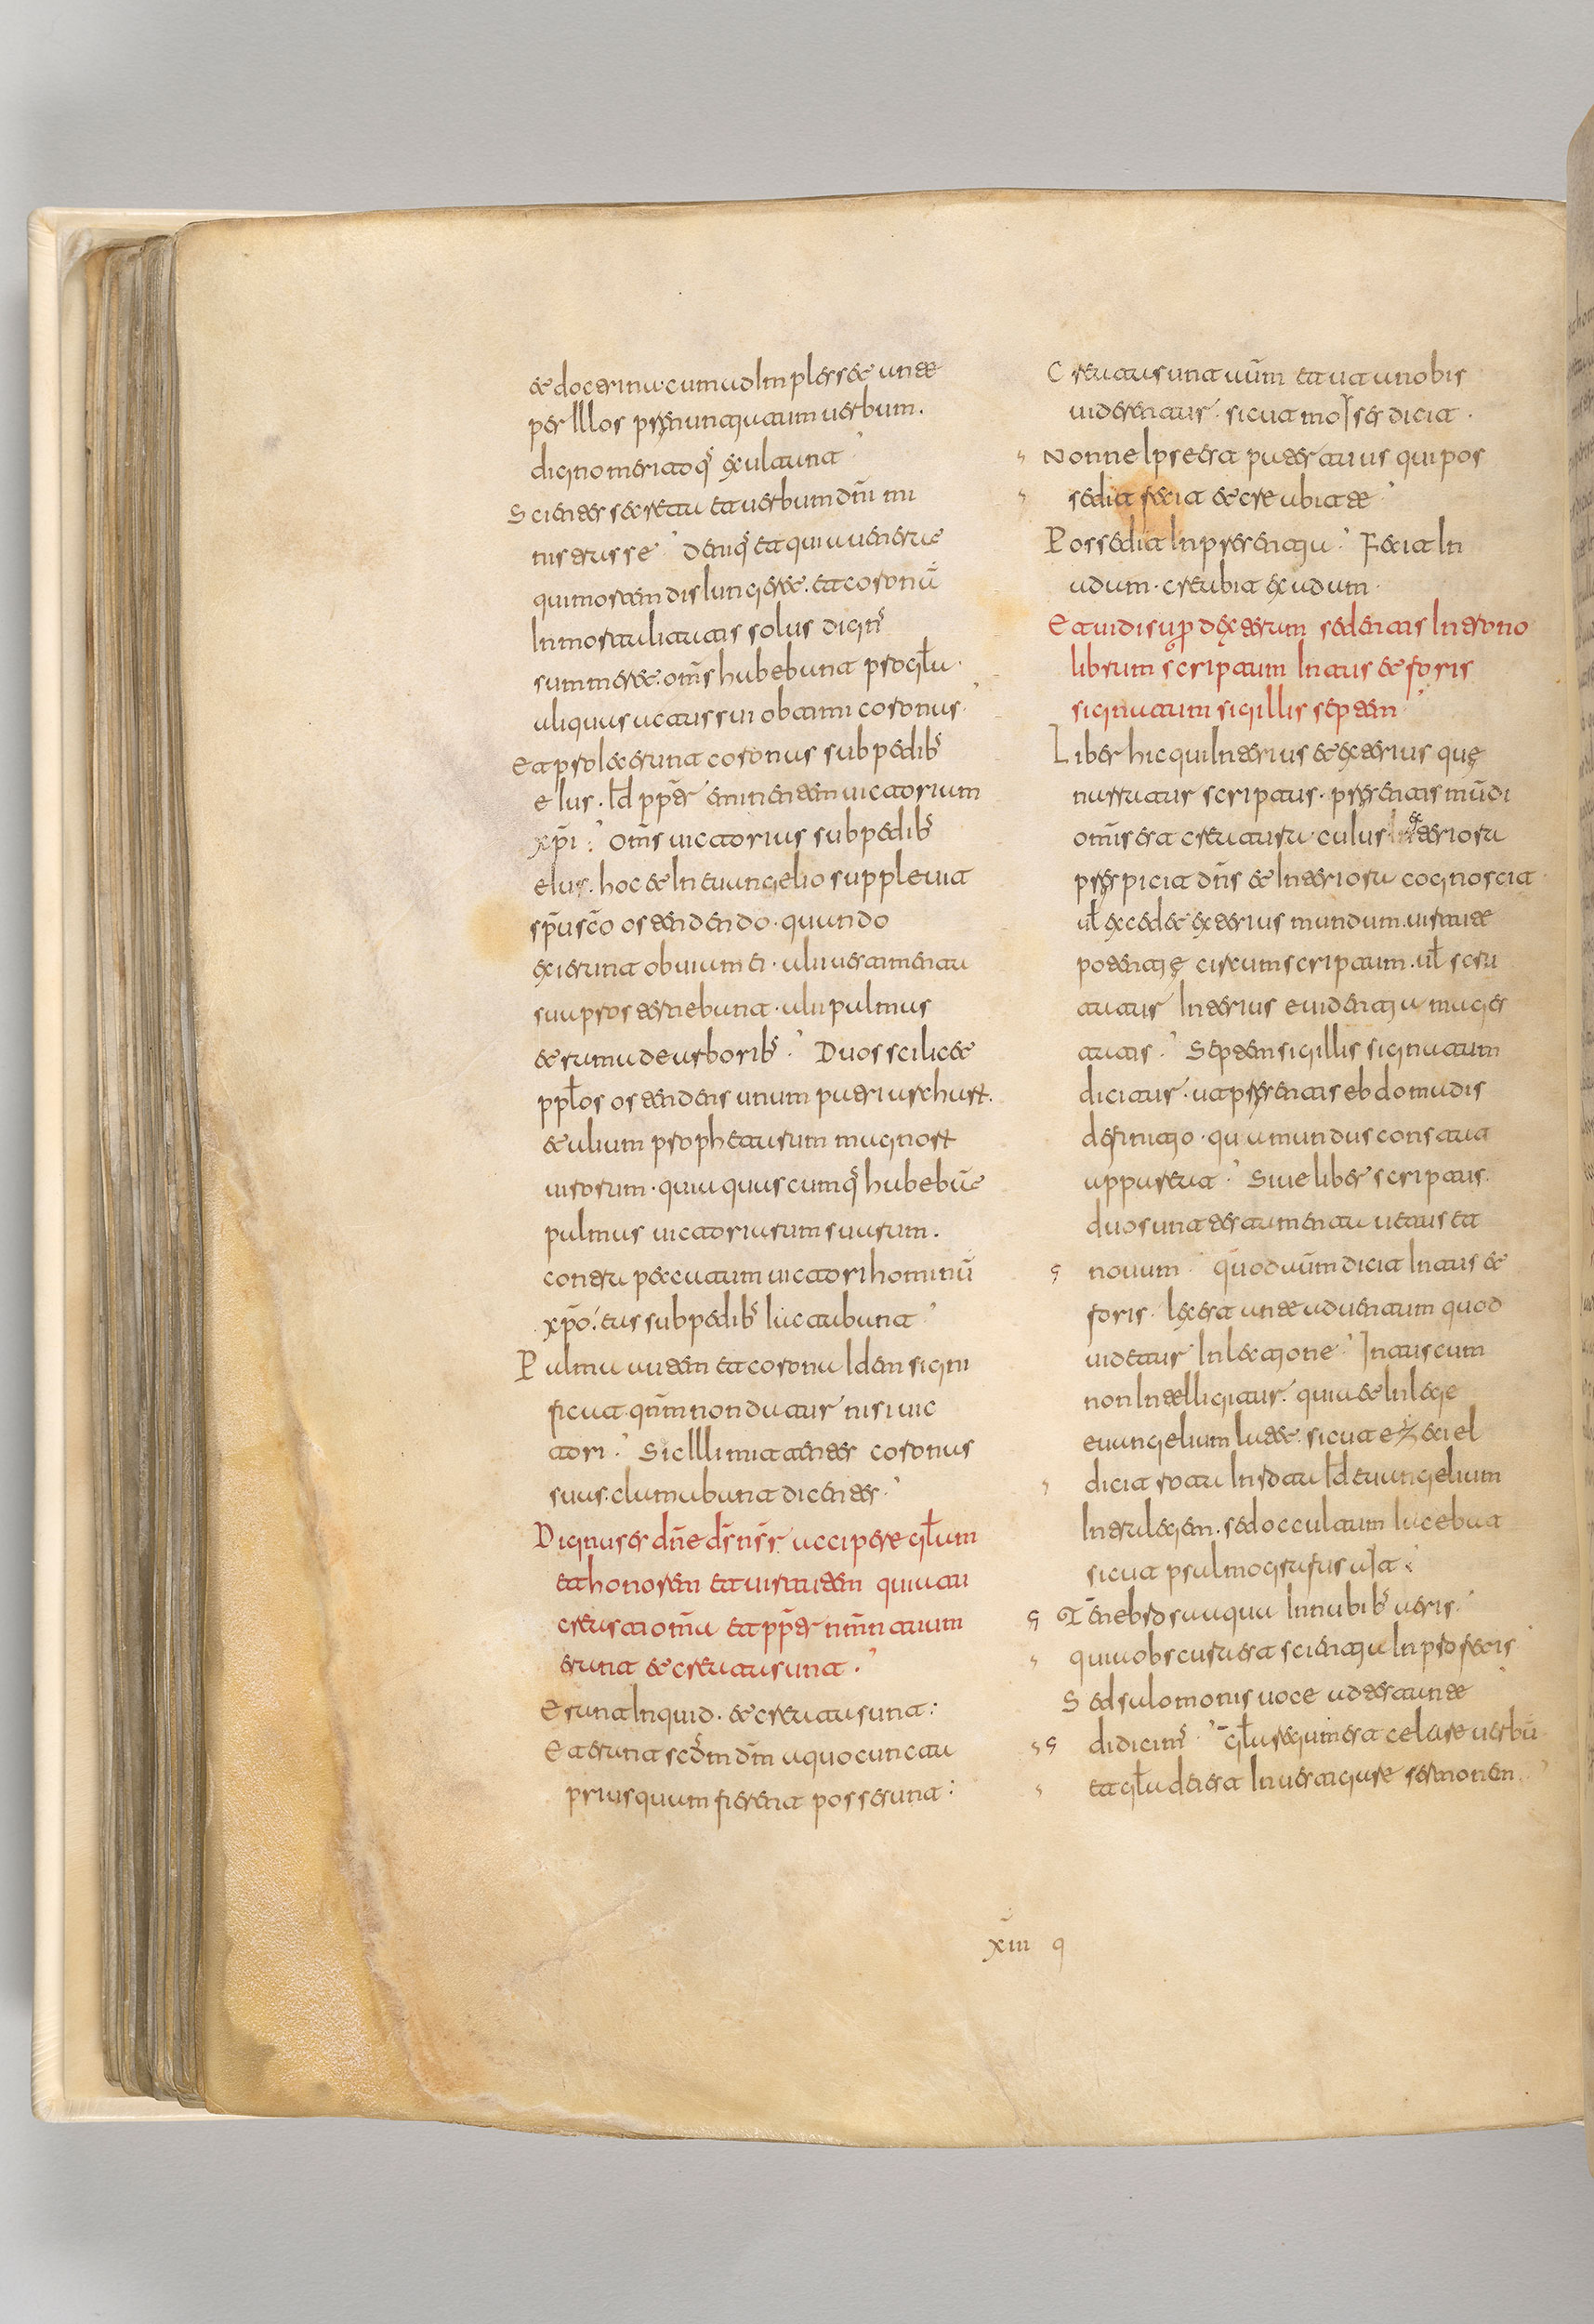 et doctrina. cum adImpleret ante
per Illos prenuntiatum uerbum.
digno meritoq; exultant
Scienter secreta et uerbum dn̄i mi
nistrasse. Deniq; et quia uenerat
qui mortem disIungeret. et coronū
In mortalitatis solus dign;
sumeret. om̄s habebant pro gl̄a.
aliquas actus sui obtimi coronas.
Et proIecerunt coronas sub pedib;
eIus. Id pp̄ter eminentem uictoriam
xp̄i: om̄s uictorias sub pedib;
eIus. hoc et In euangelio suppleuit
sp̄s sc̄s ostendendo. quando
exierunt obuiam ei. alii uestimenta
sua prosternebant. alii palmas
et rama de arborib;. Duos scilicet
ppl̄os ostendens unum patriarchar.
et alium prophetarum magnor
uirorum. quia quascumq; habebant
palmas uictoriarum suarum.
contra peccatum uictori hominū
xp̄o. eas sub pedib; Iactabant
Palma autem et corona Idem signi
ficat. qn̄m non datur nisi uic
tori. Sic Illi mittentes coronas
suas. clamabant dicentes.
Dignus es dn̄e ds̄ ns̄r. accipere gl̄am
et honorem et uirtutem quia tu
creasti om̄a et pp̄ter nm̄n tuum
erant et creata sunt.
Erant Inquid. et creata sunt:
Et erant scd̄m dm̄ a quo cuncta
priusquam fierent posserunt:
Creata sunt aūm et ut a nobis
uiderentur. sicut moIses dicit.
Nonne Ipse est pater tuus qui pos
sedit fecit et creabit te
Possedit In presentia. Fecit In
adam. creabit ex adam.
Et uidi supr dexteram sedentis In trono
librum scriptum Intus et foris
signatum sigillis septem
Liber hic qui Interius et exterius que
narratur scriptus. presentis mūdi
om̄s est creatura. cuius Interiora
prespicit dn̄s et Interiora cognoscit
ul̄ excedet exterius mundum. uirtute
potentie circumscriptum. ul̄ scru
tatur Interius euidentia mages
tatis. Septem sigillis signatum
dicitur. ut presentis ebdomadis
definitio. qua mundus constat
appareat. Siue liber scriptus.
duo sunt testamenta uetus et
nouum. quod aūm dicit Intus et
foris. Id est ante aduentum quod
uidetur In lectione. Intus cum
non Intelligitur. quia et In lege
euangelium latet. sicut ezeciel
dicit rota In rota. Id euangelium
Intra legem. sed occultum Iacebat
sicut psalmografus ait.
Tenebrosa aqua In nubib; aeris.
quia obscura est scientia In profetis
Sed salomonis uoce ad testante
didicim;. gl̄a regum est celare uerbū
et gl̄a dei est Inuestigare sermonem.
xiii q